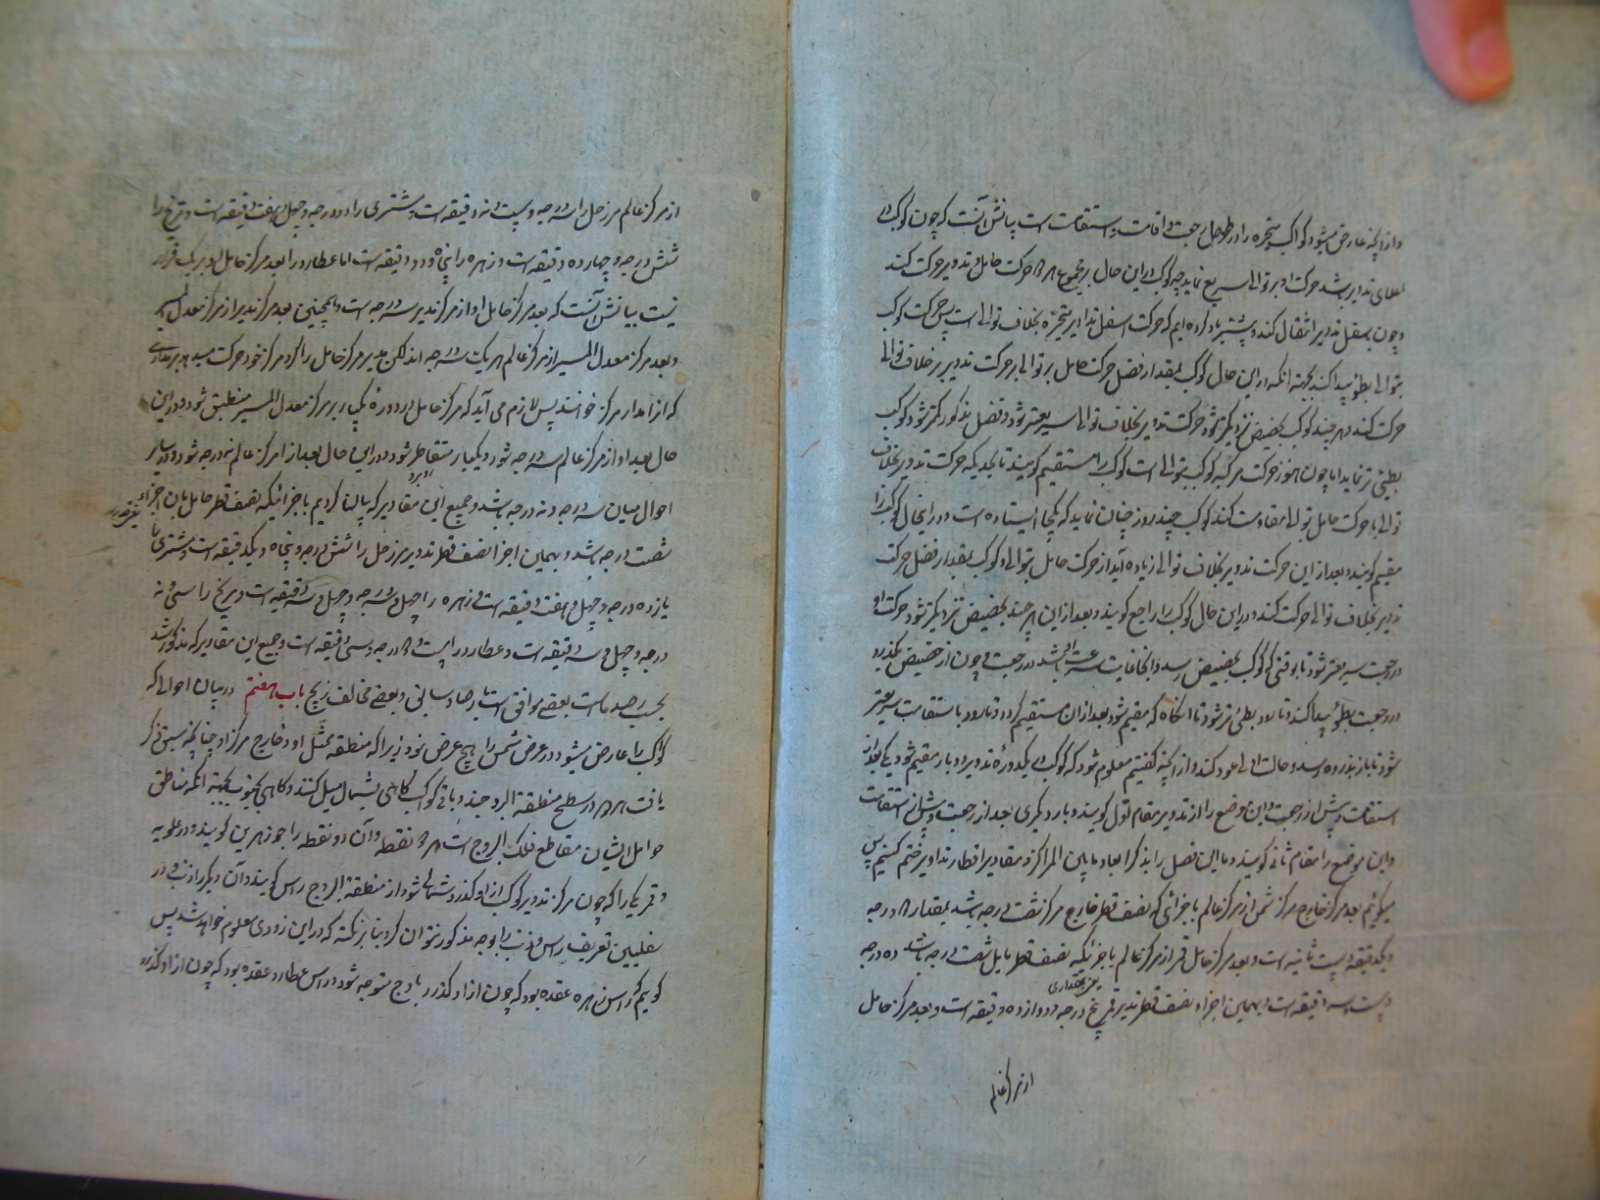 و از آنچه عارض میشود کواکب متحیره را در طول رجعت و اقامت و استقامت است بیانش آنست که چون کوکب در
اعلای تدویر باشد حرکت او بر توالی سریع نماید چه کوکب در این حال بر مجموع هر دو حرکت حامل و تدویر حرکت کند
و چون بسفل تدویر انتقال کند و پیشتر یاد کرده ایم که حرکت اسفل تداویر متحیره بخلاف توالی است پس حرکت کوکب
بتوالی بطؤ پیدا کند بجهة آنکه در این حال کوکب بمقدار فضل حرکت حامل بر توالی بر حرکت تدویر بر خلاف توالی
حرکت کند و هر چند کوکب بحضیض نزدیکتر شود حرکت تدویر بخلاف توالی سریعتر شود و فضل مذکور کمتر شود و کوکب
بطئی تر نماید اما چون هنوز حرکت مرکبه کوکب بتوالی است کوکب را مستقیم گویند تا بحدیکه حرکت تدویر بخلاف
توالی با حرکت حامل بتوالی مقاومت کند کوکب چند روز چنان نماید که یکجا ایستاده است و در اینحال کوکب را
مقیم گویند و بعد از این حرکت تدویر بخلاف توالی زیاده آید از حرکت حامل بتوالی و کوکب بمقدار فضل حرکت
تدویر بخلاف توالی حرکت کند و در این حال کوکب را راجع گویند و بعد از این هر چند بحضیض نزدیکتر شود حرکت او
در رجعت سریعتر شود تا بوقتی که کوکب بحضیض رسد و آنجا غایت سرعت او باشد در رجعت و چون از حضیض بگذرد
در رجعت بطؤ پیدا کند و تا رود بطئی تر شود تا آنگاه که مقیم شود بعد از آن مستقیم گردد و تا رود با استقامت سریعتر
شود تا باز بذروه رسد و حالت اولی عود کند و از آنچه گفتیم معلوم شود که کوکب در یکدوره تدویر دو بار مقیم شود یکی بعد از
استقامت و پیش از رجعت و این موضع را از تدویر مقام اول گویند و بار دیگری بعد از رجعت و پیش از استقامت
و این موضع را مقام ثانی گویند و ما این فصل را بذکر ابعاد ما بین المراکز و مقادیر اقطار تداویر ختم کنیم پس
میگوئیم بعد مرکز خارج مرکز شمس از مرکز عالم باجزائی که نصف قطر خارج مرکز شصت درجه باشد بمقدار دو درجه
و یکدقیقه و بیست ثانیه است و بعد مرکز حامل قمر از مرکز عالم باجزائیکه نصف قطر مایل شصت درجه باشد ده درجه
و بیست و سه دقیقه است و بهمین اجزا نصف قطر تدویر قمر پنج درجه و دوازده دقیقه است و بعد مرکز حامل
از مرکز عالم
از مرکز عالم مر زحل را سه درجه و بیست و نه دقیقه است و مشتری را دو درجه و چهل و هفت دقیقه است و مریخ را
شش درجه و چهارده دقیقه است و زهره را پنجاه و دو دقیقه است اما عطارد را بعد مرکز حامل او بر یک قرار
نیست بیانش آنست که بعد مرکز حامل او از مرکز مدیر سه درجه است و همچنین بعد مرکز مدیر از مرکز معدل المسیر
و بعد مرکز معدل المسیر از مرکز عالم هر یک سه درجه اند لکن مدیر مرکز حامل را گرد مرکز خود حرکت میدهد بر مداری
که آنرا مدار مرکز خوانند پس لازم می آید که مرکز حامل در دوره یکبار بر مرکز معدل المسیر منطبق شود و در این
حال بعد او از مرکز عالم سه درجه شود و یکبار متقاطر شود و در این حال بعد او از مرکز عالم نه درجه شود و در سایر
احوال میان سه درجه و نه درجه باشد و جمیع این مقادیر که بیان کردیم باجزائیکه نصف قطر حامل بان اجزاء
شصت درجه باشد و بهمین اجزا نصف قطر تدویر مر زحل را شش درجه و پنجاه و یکدقیقه است و مشتری را
یازده درجه و چهل و هفت دقیقه است و زهره را چهل و سه درجه و چهل و سه دقیقه است و مریخ را سی و نه
درجه و چهل و سه دقیقه است و عطارد را بیست و دو درجه و سی دقیقه است و جمیع این مقادیر که مذکور شد
بحسب رصدهاست بعضی موافق است با رصاد سابق و بعضی مخالف زیج باب هفتم در بیان احوالی که
کواکب را عارض میشود در عرض شمس را هیچ عرض نبود زیرا که منطقه ممثل او و خارج مرکز او چنانچه سبق ذکر
یافت هر دو در سطح منطقة البروجند و باقی کواکب گاهی بشمال میل کنند و گاهی بجنوب بجهة آنکه مناطق
حوامل ایشان مقاطع فلک البروج است بر دو نقطه و آن دو نقطه را جوزهرین گویند و در علویه
و قمر یکی را که چون مرکز تدویر کوکب از او گذرد شمالی شود از منطقة البروج راس گویند و آن دیگر را ذنب و در
سفلیین تعریف راس و ذنب را بوجه مذکور نتوان کرد بنا بر نکته که در این زودی معلوم خواهد شد پس
گوئیم که راس زهره عقده بود که چون از او گذرد باوج متوجه شود و راس عطارد عقده بود که چون از او گذرد